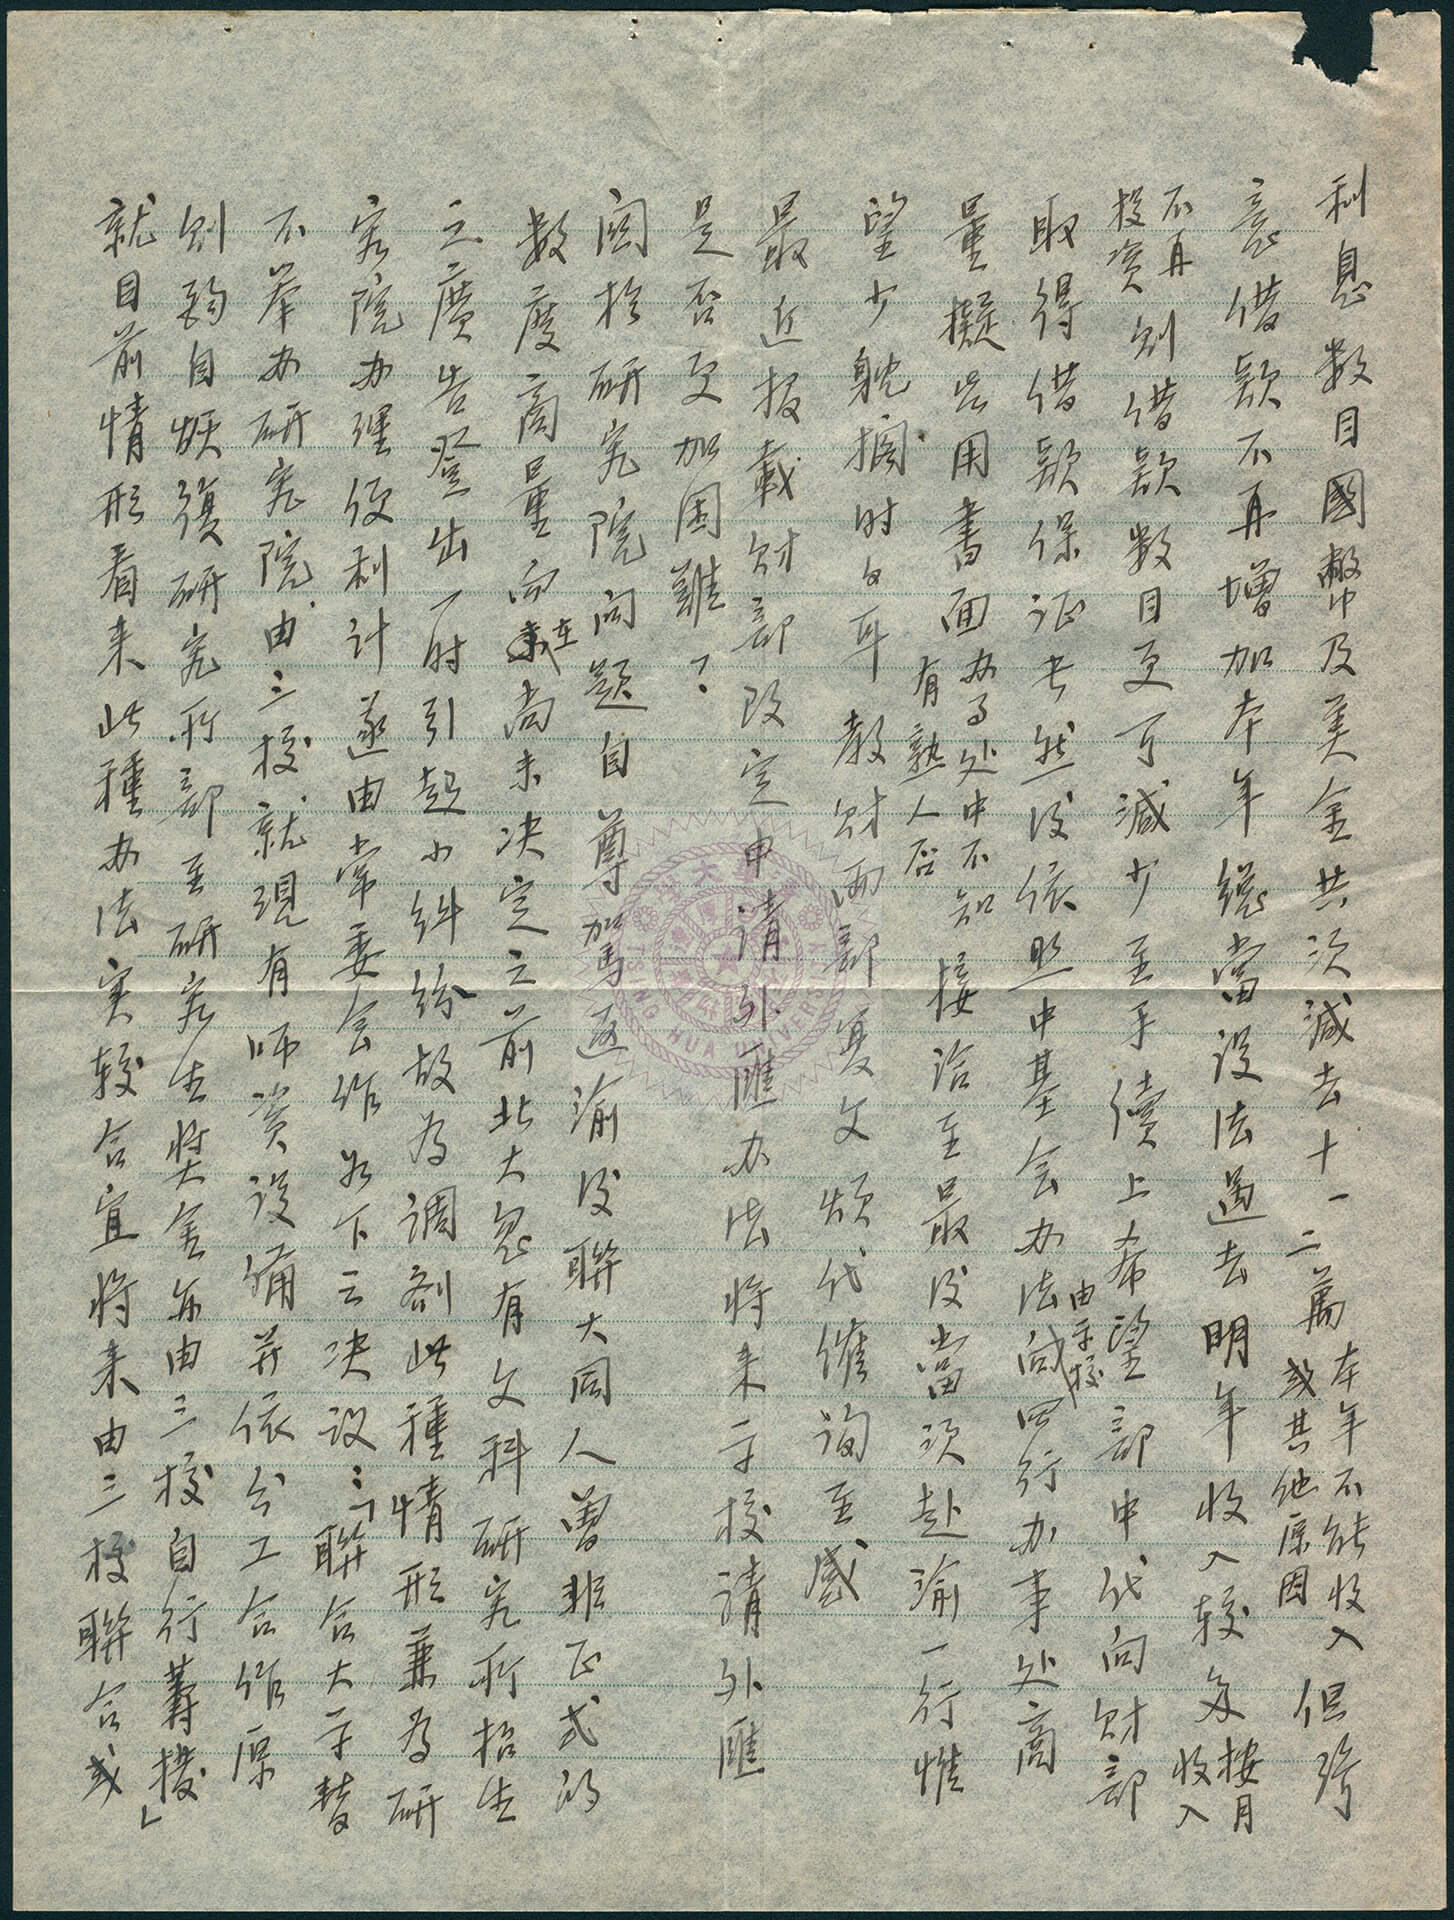 利息數目國幣及美金共須減去十一二萬本年不能收入或其他原因但隆
意借款不再增加本年總當設法過去明年收入較多按月收入
不再投資則借款數目更可減少至手續上希望部中代向財部
取得借款保证书然後依照中基会办法由学校向四行办事处商
量擬先用書面办事处中不知有熟人否接洽至最後當須赴渝一行惟
望少躭擱时日耳教財兩部复文煩代催詢至感
最近报載財部改定申請外匯办法將来学校請外匯
是否更加困難？
関於研究院问題自尊駕返渝後聯大同人曾非正式的
數度商量向在尚未决定之前北大忽有文科研究所招生
之廣告登出一时引起小糾紛故為調劑此種情形兼為研
究院办理便利计遂由常委会作如下之决议：「聯合大学暂
不举办研究院由三校就現有师资设備并依分工合作原
则酌自恢復研究所部至研究生奖金亦由三校自行籌拨」
就目前情形看来此種办法实較合宜將来由三校聯合或
TSING HUA UNIVERSITY